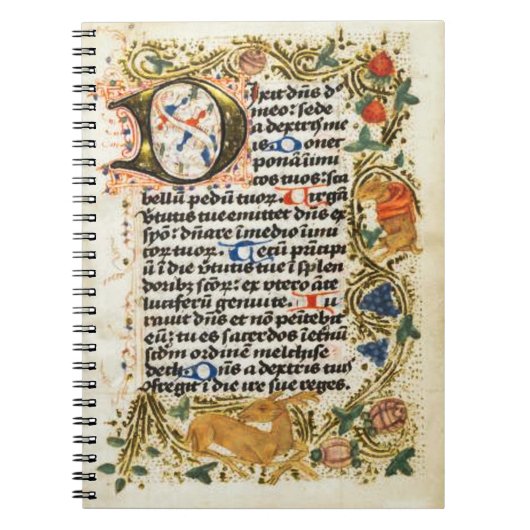 Dixit dn̄s d̄o
meo: sede
a dextrys me
is Donec
ponā īimi
cos tuos: sca
bellū pedū tuoꝝ. Virgā
v̄tutis tue emittet dn̄s ex
syō: dn̄are ī medio īimi
coꝝ tuoꝝ. Tecū prīcipi
ū ī die v̄tutis tue ī splen
doribꝫ scōꝝ: ex vtero āte
luciferū genui te. Iu
rauit dn̄s et nō penitebit
eū: tu es sacerdos ī etnū
scdm̄ ordinē melchise
dech Dn̄s a dextris tuis
ɔfregit ī die ire sue reges.